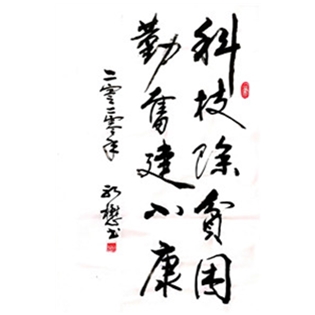 科技除贫困
勤奋建小康
二零二零年 永懋书